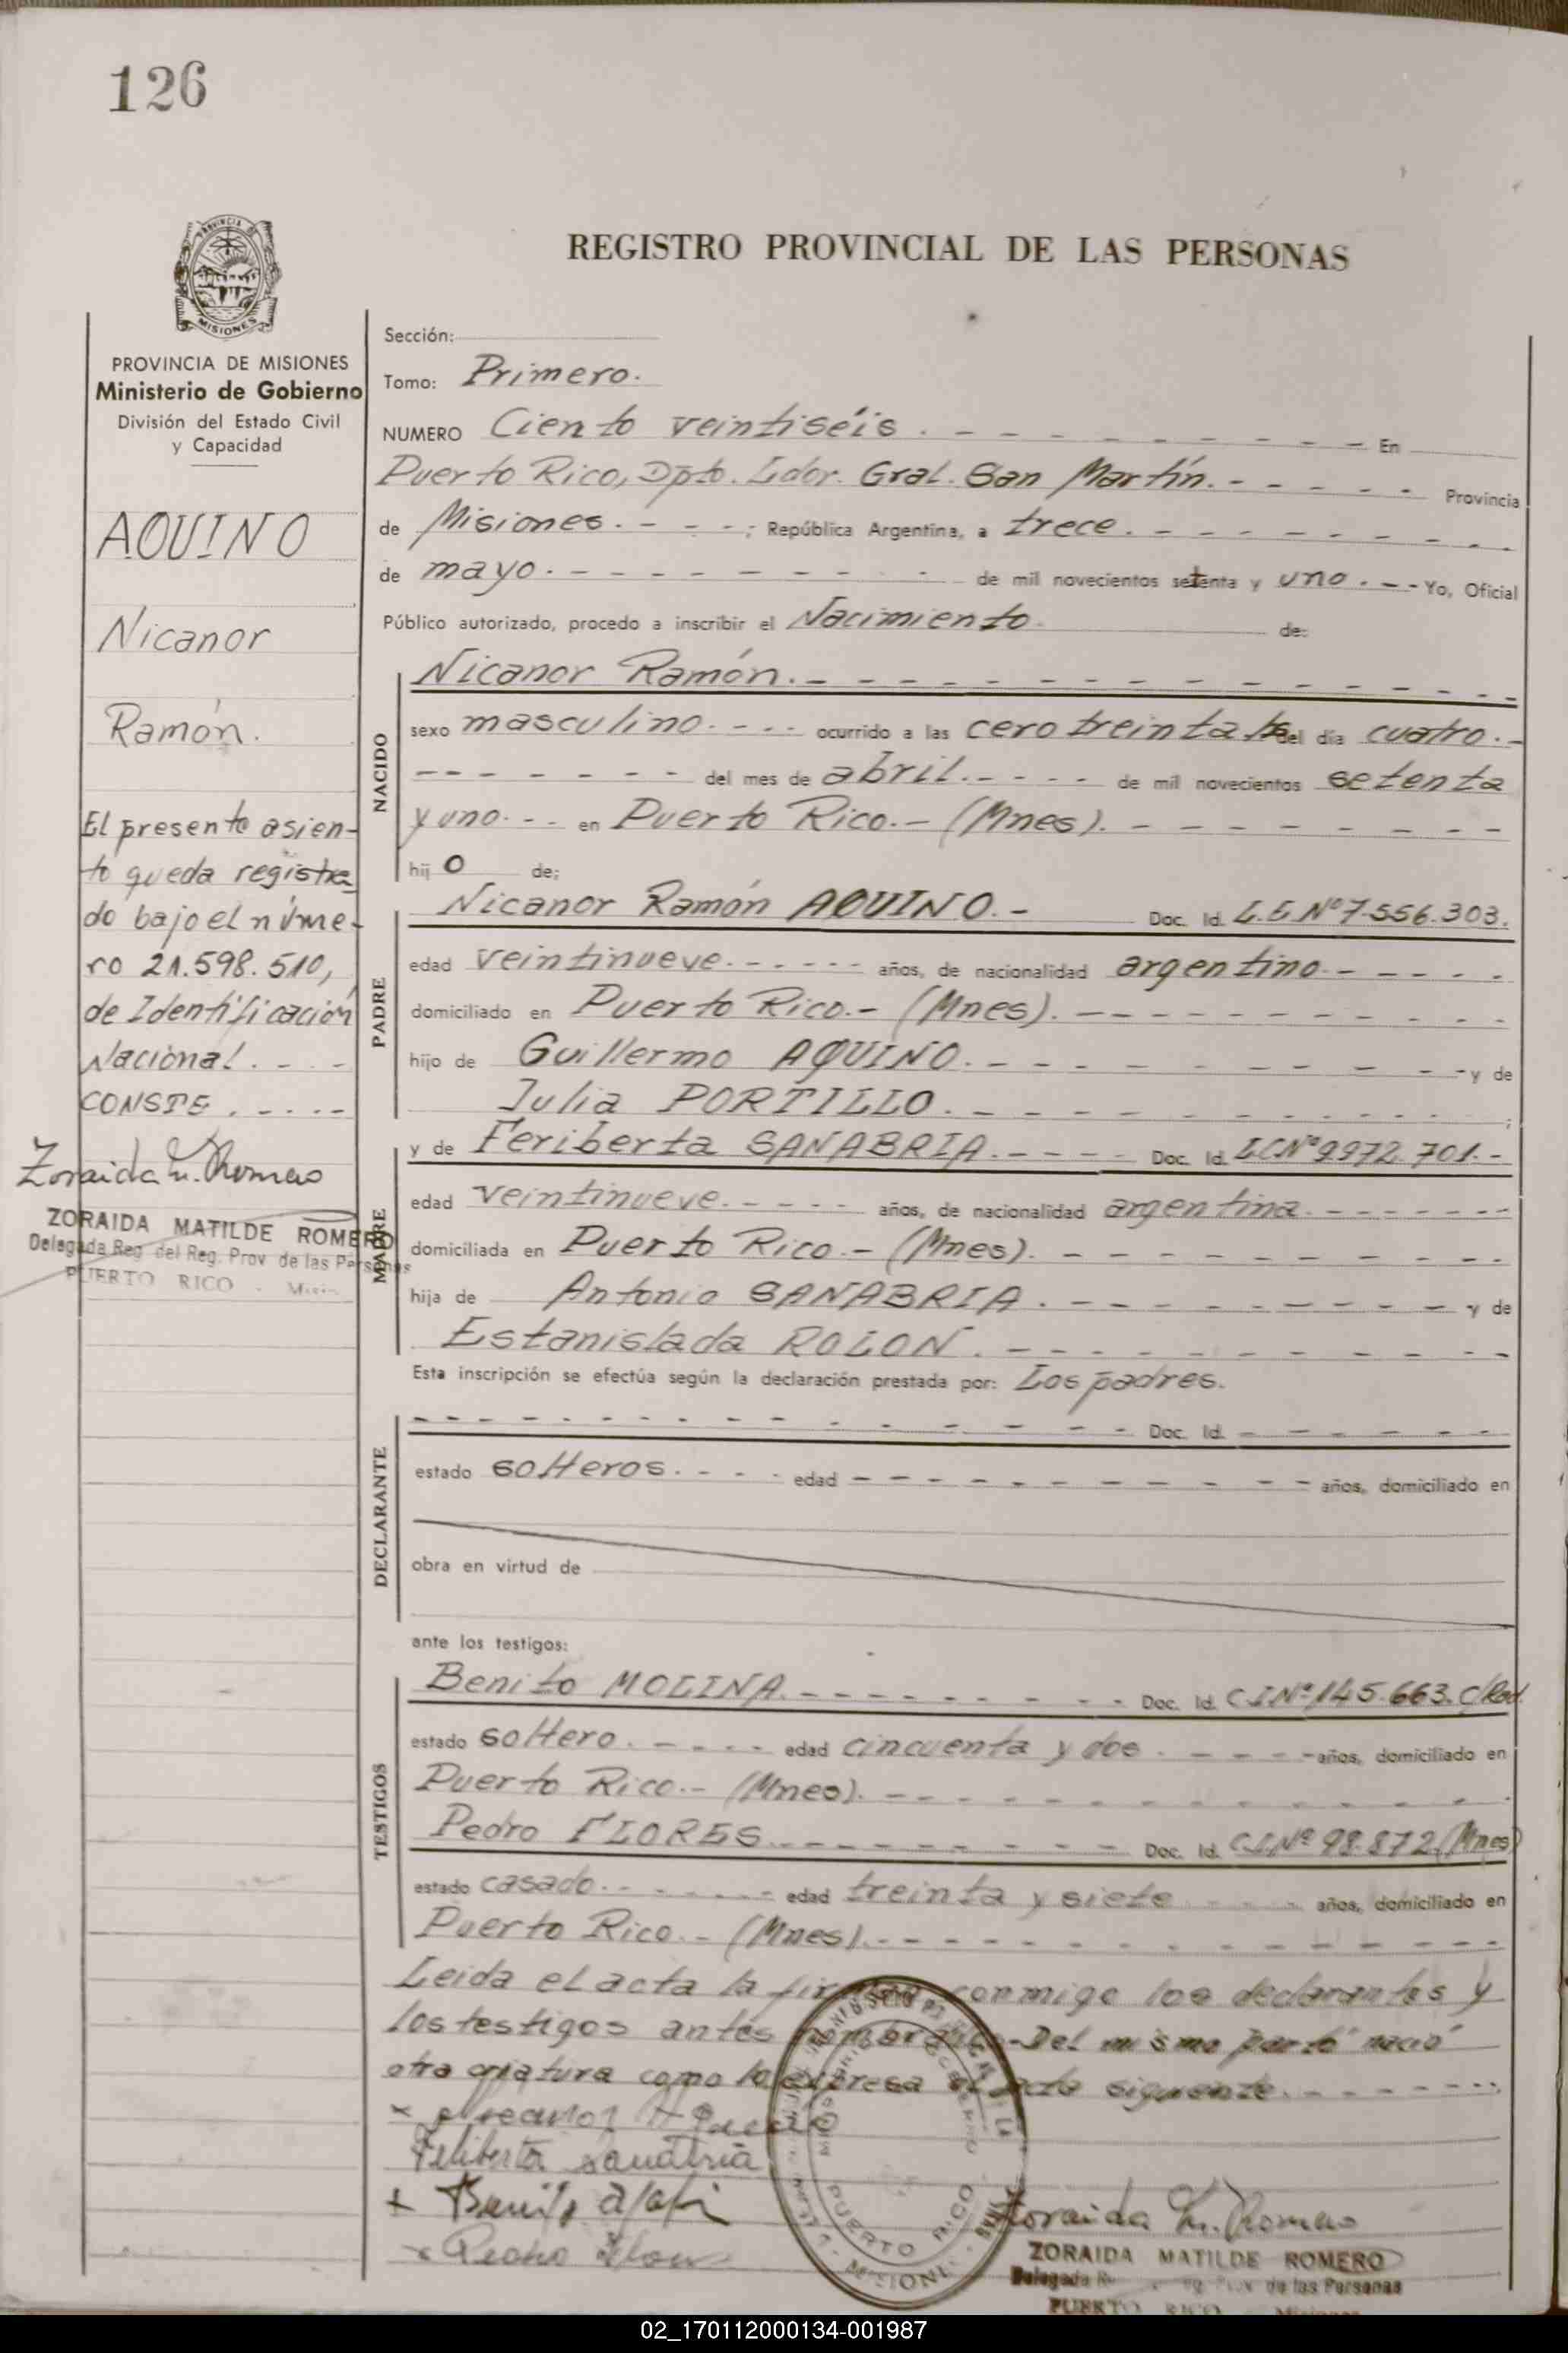 126
PROVINCIA DE MISIONES
Ministerio de Gobierno
División del Estado Civil
y Capacidad
AQUINO
Nicanor
Ramón.
El presente asien-
to queda registra
do bajo el núme-
ro 21.598.510,
de Identificación
Nacional. - - -
CONSTE. - - - -
Zoraida M. Romero
ZORAIDA MATILDE ROMERO
Delegada Reg. del Reg. Prov. de las Personas
PUERTO RICO - Misio
REGISTRO PROVINCIAL DE LAS PERSONAS
Sección:
Tomo: Primero.
NUMERO Ciento veintiséis. - - - - - - - - - En
Puerto Rico, Dpto. Ldor. Gral. San Martín. - - - - - Provincia
de Misiones. - - - ; República Argentina, a trece. - - - - - - - -
de mayo. - - - - - - - - - de mil novecientos setenta y uno. - - Yo, Oficial
Público autorizado, procedo a inscribir el Nacimiento de:
NACIDO
Nicanor Ramón. - - - - - - - - - - - - -
sexo masculino. - - - ocurrido a las cero treinta hs del día cuatro. -
- - - - - - - - del mes de abril. - - - - de mil novecientos setenta
y uno. - - en Puerto Rico. - (Mnes). - - - - - - - -
hijo de:
PADRE
Nicanor Ramón AQUINO. - Doc. Id. L.E. Nº 7.556.303.
edad veintinueve. - - - - - años, de nacionalidad argentino - - - - -
domiciliado en Puerto Rico. - (Mnes). - - - - - - - - -
hijo de Guillermo AQUINO. - - - - - - - - - y de
Julia PORTILLO. - - - - - - - - - - - ;
MADRE
y de Feriberta SANABRIA. - - - - Doc. Id. LC Nº 9972.701. -
edad veintinueve. - - - - - años, de nacionalidad argentina. - - - - - -
domiciliada en Puerto Rico. - (Mnes). - - - - - - - - -
hija de Antonio SANABRIA. - - - - - - - - - y de
Estanislada ROLON. - - - - - - - - - -
Esta inscripción se efectúa según la declaración prestada por: Los padres.
DECLARANTE
- - - - - - - - - - - - - Doc. Id. - - - - - -
estado solteros. - - - - edad - - - - - - - - - años, domiciliado en
obra en virtud de
ante los testigos:
TESTIGOS
Benito MOLINA. - - - - - - - - - Doc. Id. C.I. Nº 145.663. C/Rad.
estado soltero. - - - - - edad cincuenta y dos. - - - - años, domiciliado en
Puerto Rico. - (Mnes). - - - - - - - - - - -
Pedro FLORES. - - - - - - - - - Doc. Id. C.I. Nº 98.872. (Mnes)
estado casado. - - - - - - edad treinta y siete - - - - años, domiciliado en
Puerto Rico. - (Mnes). - - - - - - - - - - -
Leida el acta la conmigo los declarantes y
los testigos antes nombrados - Del mismo parto nació
otra criatura como lo expresa el acta siguiente. - - - - - -
Feliberta Sanabria
Pedro
PUERTO RICO
Zoraida M. Romero
ZORAIDA MATILDE ROMERO
Delegada Prov. de las Personas
PUERTO RICO Misiones
02_170112000134-001987